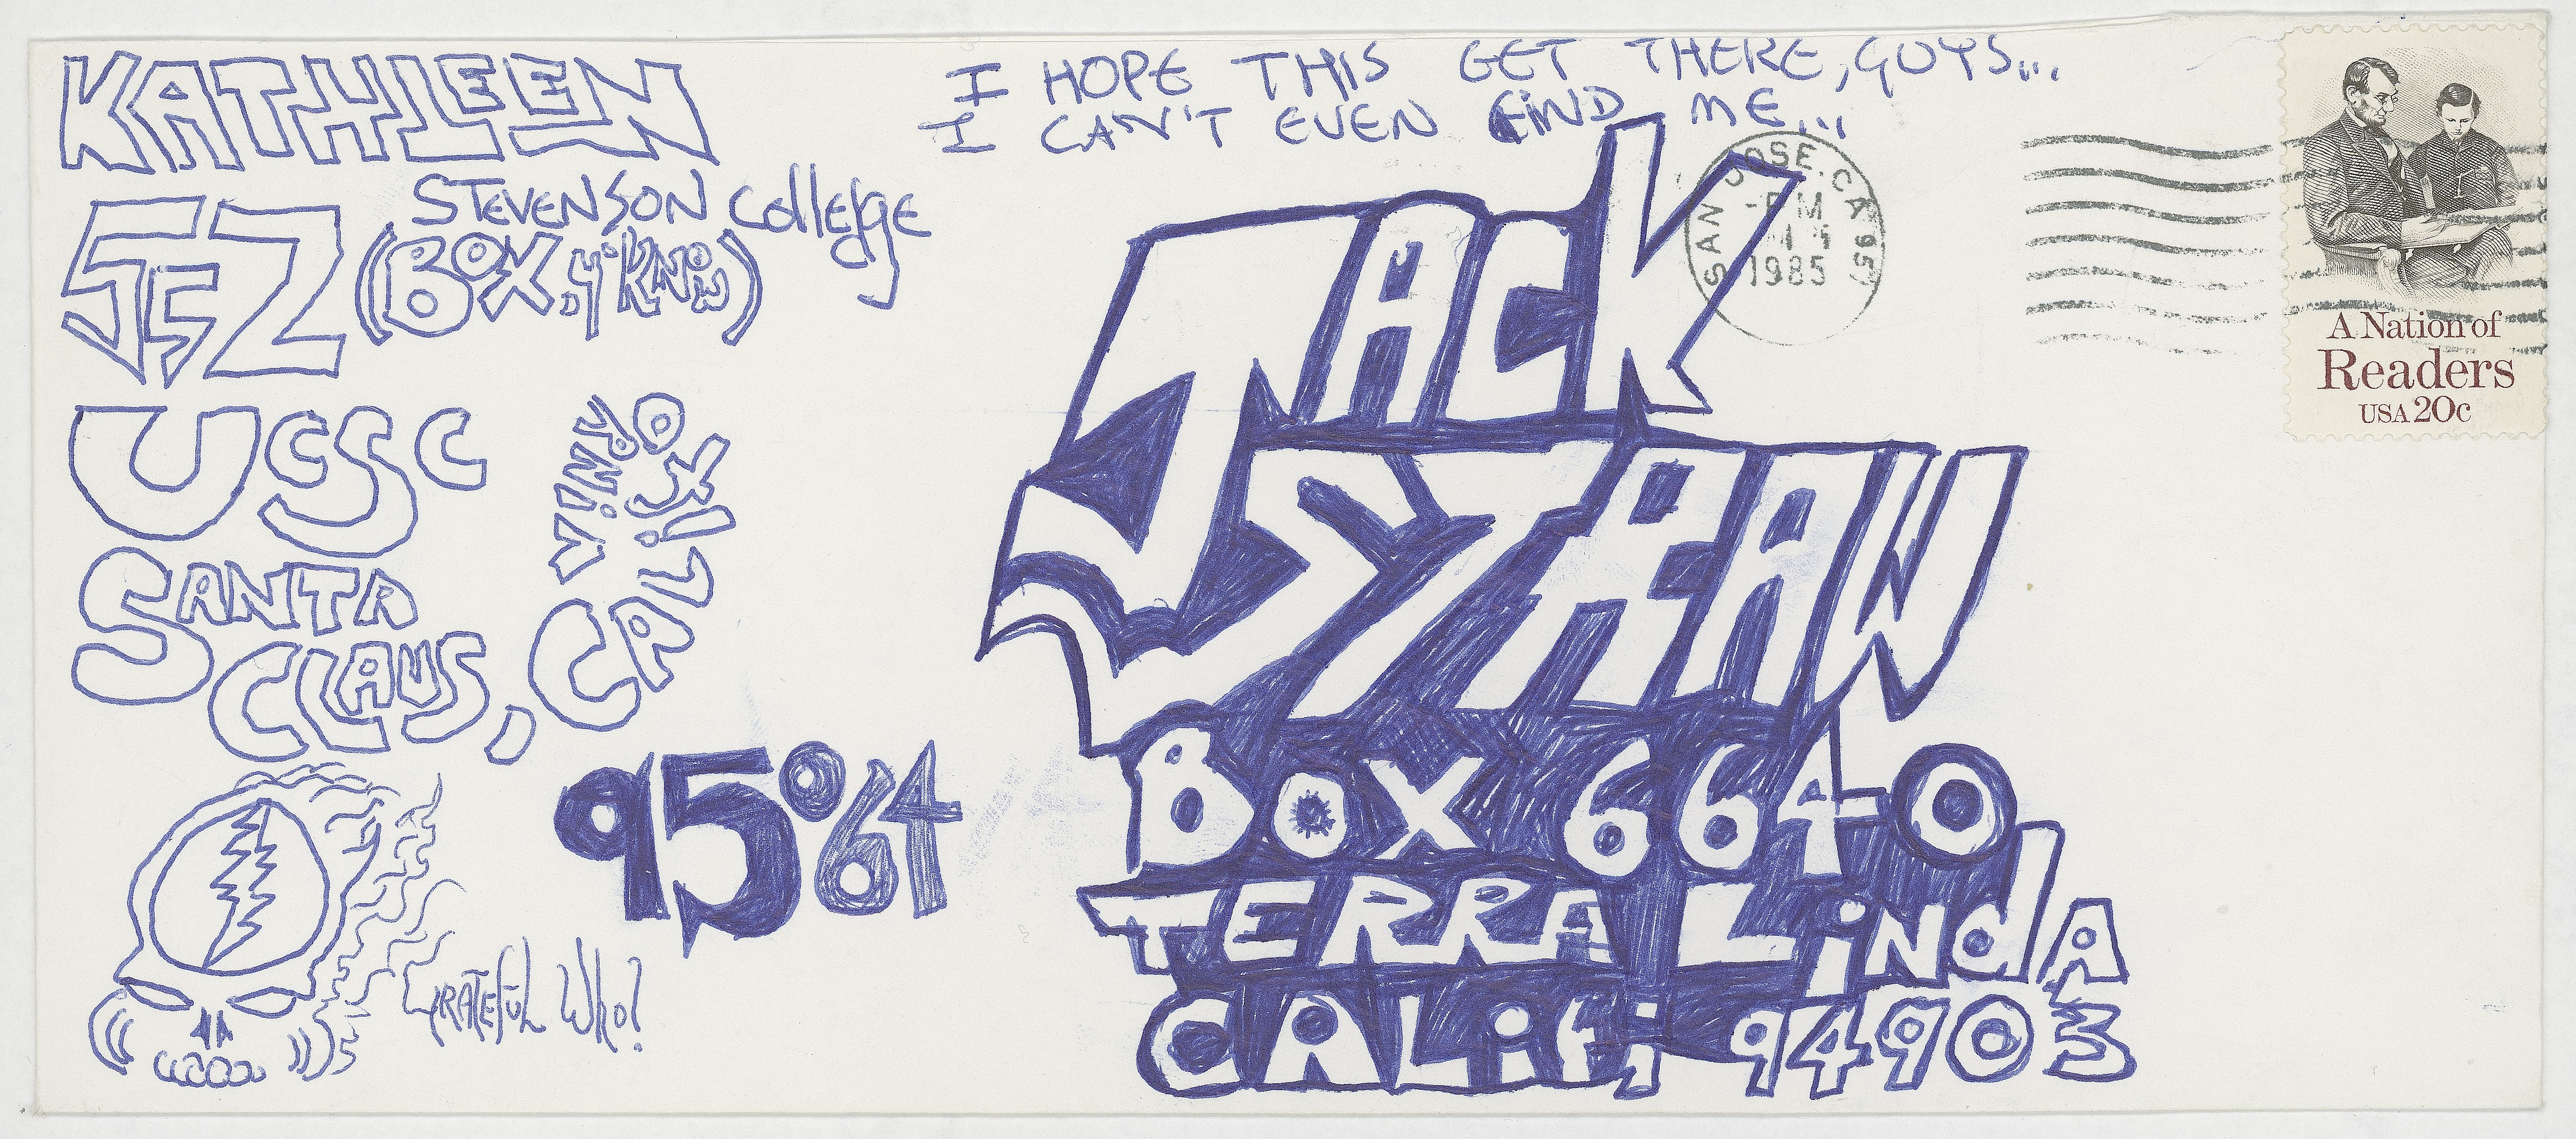 KATHLEEN
STEVENSON COllEgE
572 (BOX, y'KNOW)
UCSC
SANTA
CLAUS, CALIFO
RNiA
95064
GRATEFUL WHO?
I HOPE THIS GET THERE, GUYS...
I CAN'T EVEN FIND ME...
JACK
STRAW
BOX 664-O
TERRA LiNdA
CALiF; 94903
SAN JOSE, CA 951
PM
1985
A Nation of
Readers
USA 20c